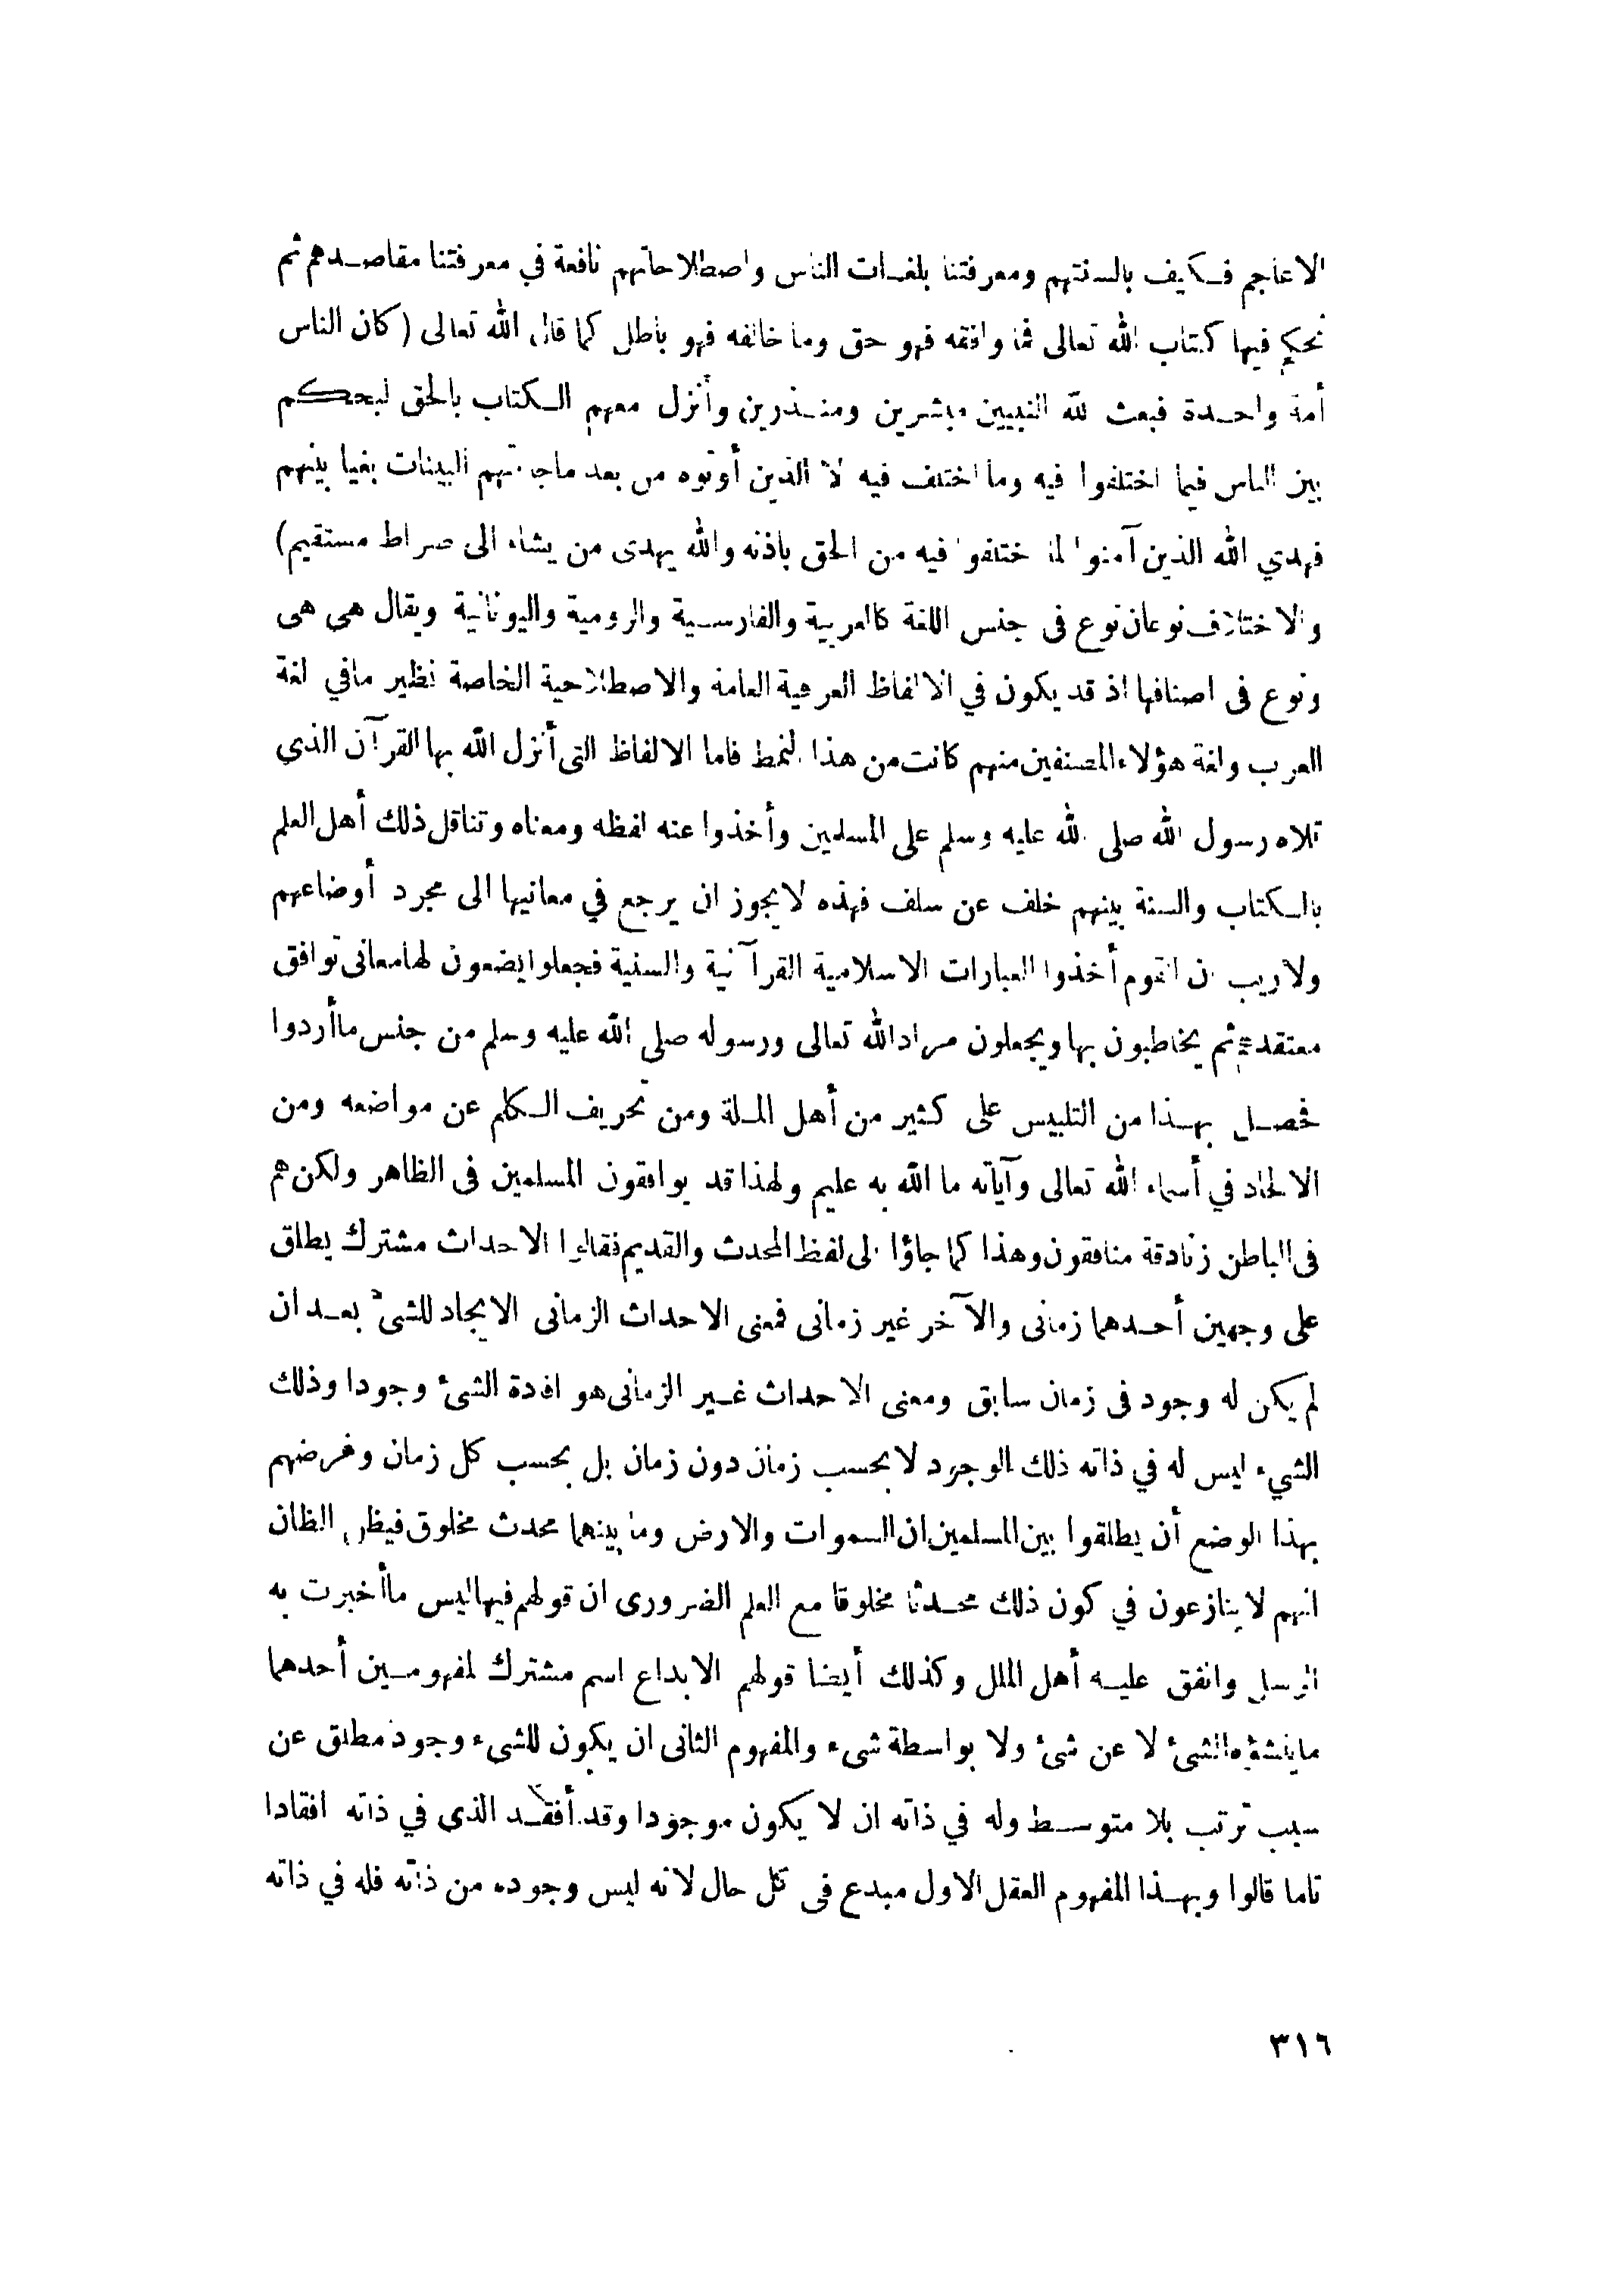 الاعاجم فكيف بالسنتهم ومعرفتنا بلغات الناس واصطلاحاتهم نافعة في معرفتنا مقاصدهم ثم
نحكم فيها كتاب الله تعالى فما وافقه فهو حق وما خالفه فهو باطل كما قال الله تعالى (كان الناس
أمة واحدة فبعث الله النبيين مبشرين ومنذرين وأنزل معهم الكتاب بالحق ليحكم
بين الناس فيما اختلفوا فيه وما اختلف فيه الا الذين أوتوه من بعد ماجاءتهم البينات بغيا بينهم
فهدي الله الذين آمنوا لما اختلفوا فيه من الحق باذنه والله يهدى من يشاء الى صراط مستقيم)
والاختلاف نوعان نوع فى جنس اللغة كالعربية والفارسية والرومية واليونانية ويقال هى هى
ونوع فى اصنافها اذ قد يكون في الالفاظ العرفية العامة والاصطلاحية الخاصة نظير مافي لغة
العرب ولغة هؤلاء المصنفين منهم كانت من هذا النمط فاما الالفاظ التى أنزل الله بها القرآن الذي
تلاه رسول الله صلى الله عليه وسلم على المسلمين وأخذوا عنه لفظه ومعناه وتناقل ذلك أهل العلم
بالكتاب والسنة بينهم خلف عن سلف فهذه لا يجوز ان يرجع في معانيها الى مجرد أوضاعهم
ولا ريب ان القوم أخذوا العبارات الاسلامية القرآنية والسنية فجعلوا يضعون لها معانى توافق
معتقدهم ثم يخاطبون بها ويجعلون مراد الله تعالى ورسوله صلى الله عليه وسلم من جنس ماأردوا
فحصل بهذا من التلبيس على كثير من أهل الملة ومن تحريف الكلم عن مواضعه ومن
الالحاد في أسماء الله تعالى وآياته ما الله به عليم ولهذا قد يوافقون المسلمين فى الظاهر ولكن هم
فى الباطن زنادقة منافقون وهذا كما جاؤا الى لفظ المحدث والقديم فقالوا الاحداث مشترك يطلق
على وجهين أحدهما زمانى والآخر غير زمانى فمعنى الاحداث الزمانى الايجاد للشئ بعد ان
لم يكن له وجود فى زمان سابق ومعنى الاحداث غير الزمانى هو افادة الشئ وجودا وذلك
الشيء ليس له في ذاته ذلك الوجود لا بحسب زمان دون زمان بل بحسب كل زمان وغرضهم
بهذا الوضع أن يطلقوا بين المسلمين ان السموات والارض وما بينهما محدث مخلوق فيظن الظان
انهم لا ينازعون في كون ذلك محدثا مخلوقا مع العلم الضرورى ان قولهم فيها ليس ماأخبرت به
الرسل واتفق عليه أهل الملل وكذلك أيضا قولهم الابداع اسم مشترك لمفهومين أحدهما
الشئ لا عن شئ ولا بواسطة شىء والمفهوم الثانى ان يكون للشىء وجود مطلق عن
سبب ترتب بلا متوسط وله في ذاته ان لا يكون موجودا وقد أفقد الذى في ذاته افقادا
تاما قالوا وبهذا المفهوم العقل الاول مبدع فى كل حال لانه ليس وجوده من ذاته فله في ذاته
٣١٦